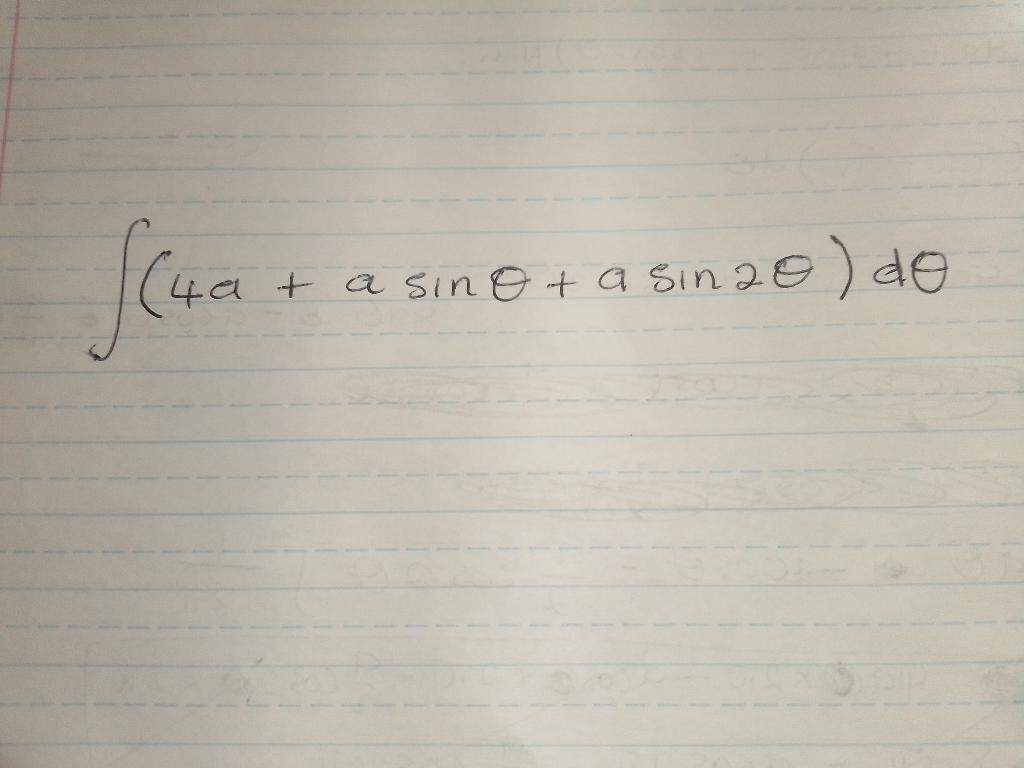 ∫(4a + a sinθ + a sin2θ) dθ